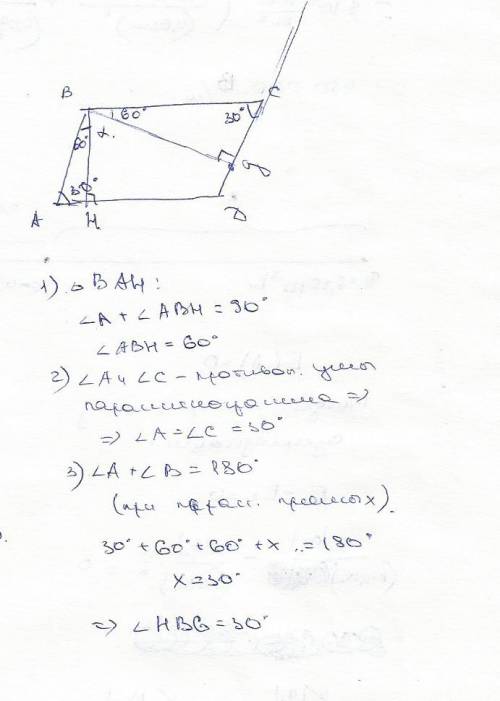 B
C
60°
30°
60°
α.
30°
A
H
D
1) △BAH:
∠A + ∠ABH = 90°
∠ABH = 60°
2) ∠A и ∠C – противоп. углы
параллелограмма ⇒
⇒ ∠A = ∠C = 30°
3) ∠A + ∠B = 180°
(при парал. прямых).
30° + 60° + 60° + x = 180°
x = 30°
⇒ ∠HBG = 30°